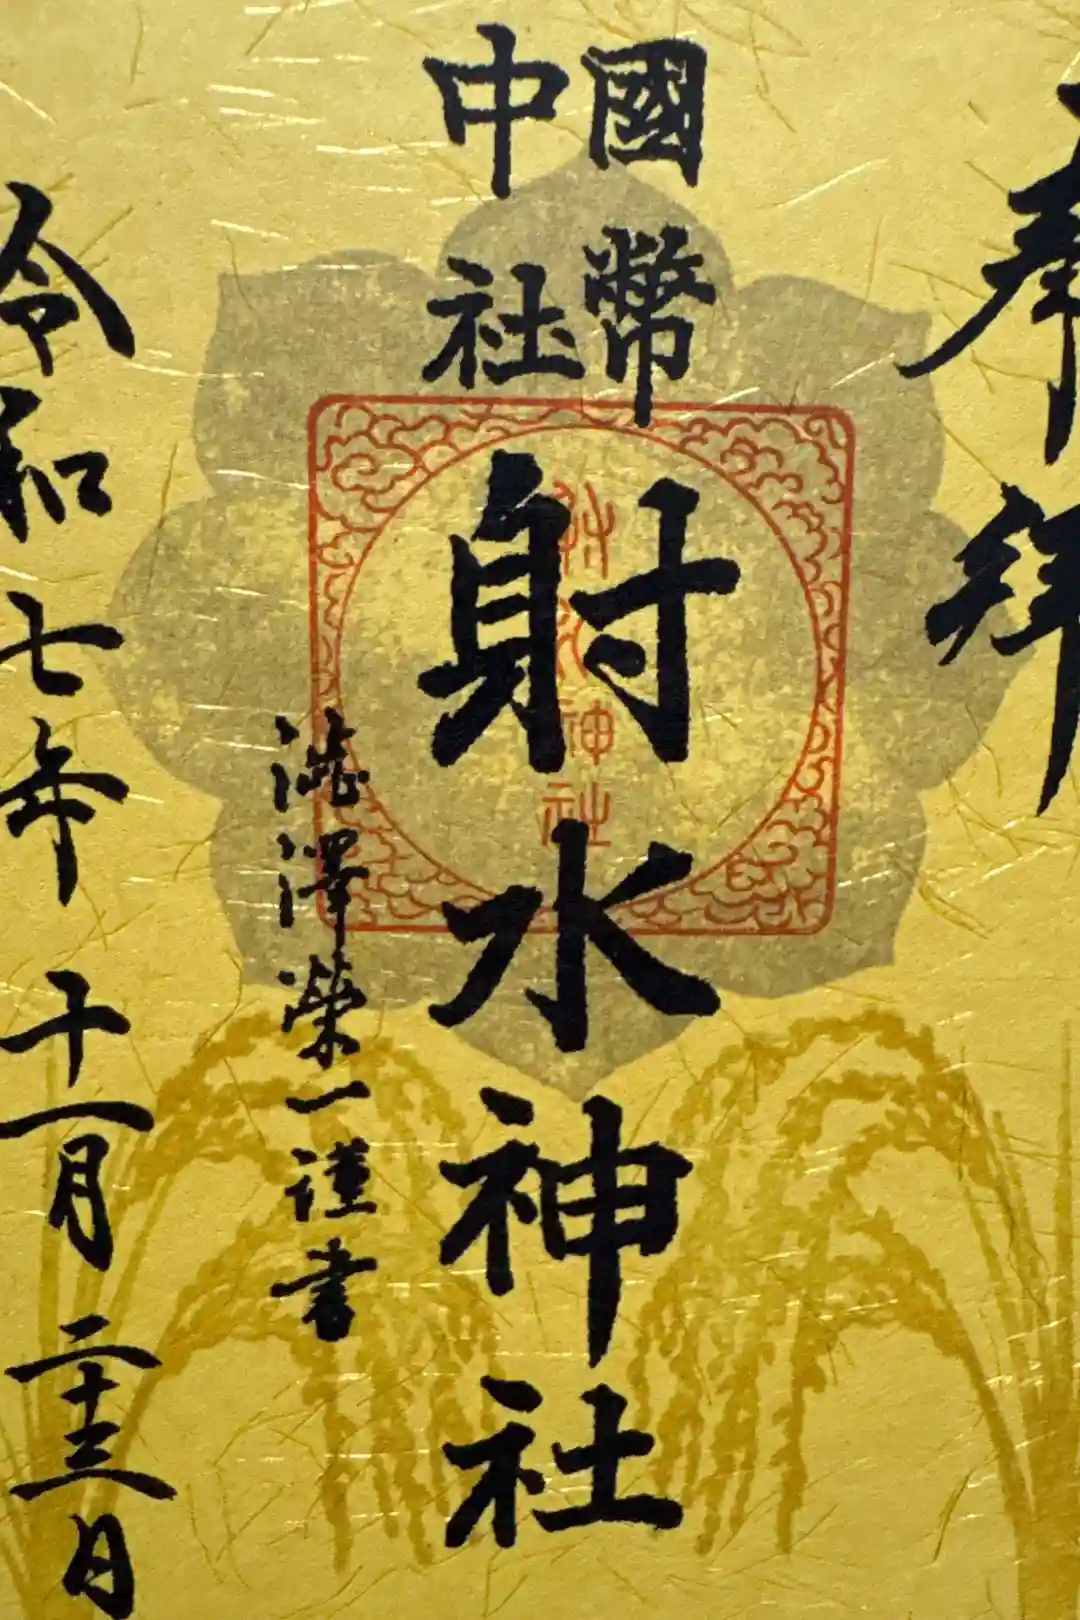 奉拜
國幣
中社
射水神社
射水神社
澁澤榮一謹書
令和七年十一月二十三日